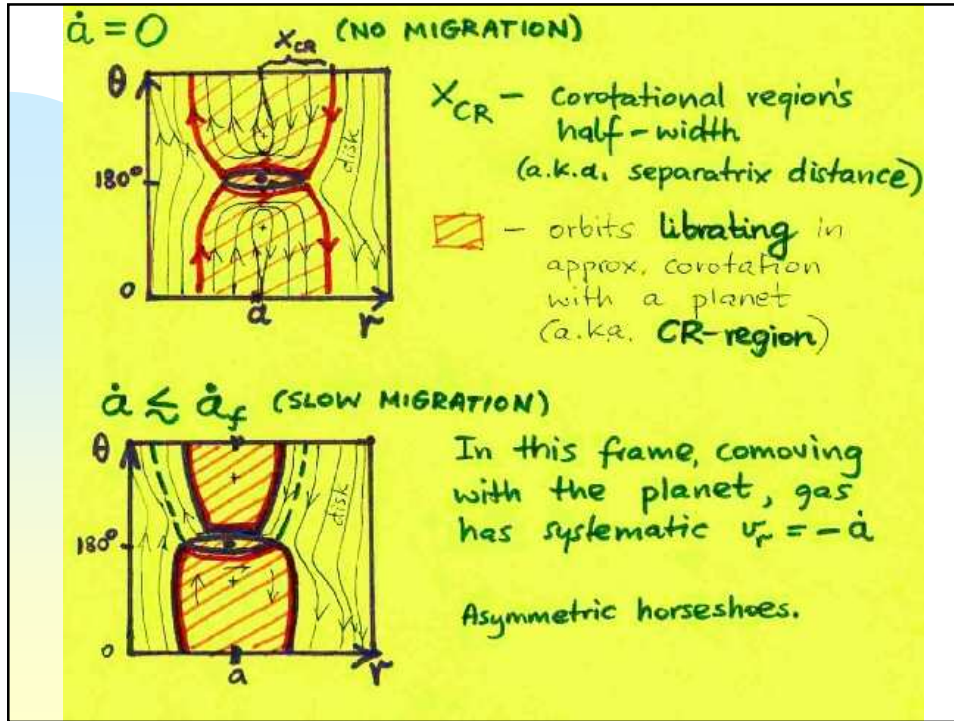 ȧ = 0 (NO MIGRATION)
X_CR
θ
180°
0
a
r
disk
X_CR – Corotational region's
half-width
(a.k.a. separatrix distance)
– orbits librating in
approx. corotation
with a planet
(a.k.a. CR-region)
ȧ ≲ ȧ_f (SLOW MIGRATION)
θ
180°
0
a
r
disk
In this frame, comoving
with the planet, gas
has systematic v_r = -ȧ
Asymmetric horseshoes.